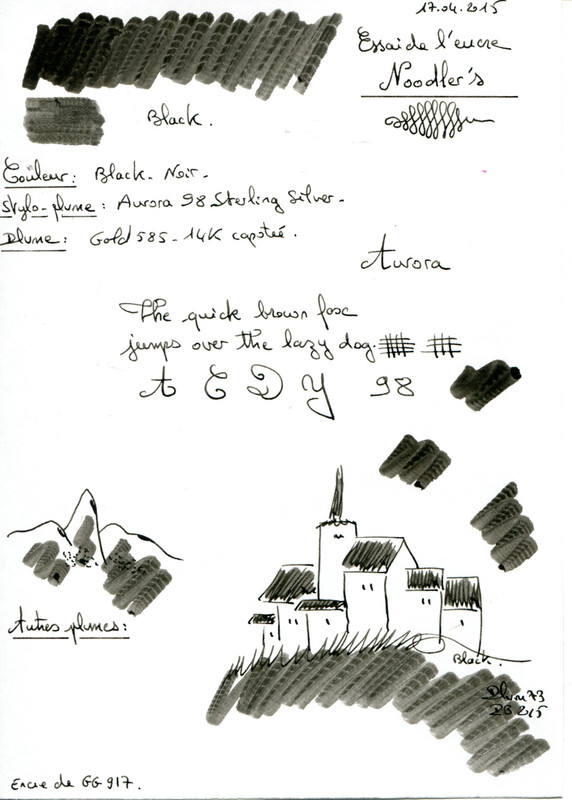 17.04.2015
Essai de l'encre
Noodler's
Black.
Couleur: Black - Noir -
Stylo-plume: Aurora 98 Sterling Silver -
Plume: Gold 585 - 14K capotée.
Aurora
The quick brown fox
jumps over the lazy dog.
A E D Y 98
Autres plumes:
Black.
Plum73
2015
Encre de GG917.